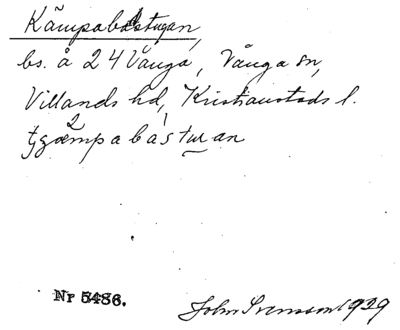 Kämpabastugan,
bs. å 24 Vånga, Vånga sn,
Villands hd, Kristianstads l.
Nr 5486.
John Svensson 1929